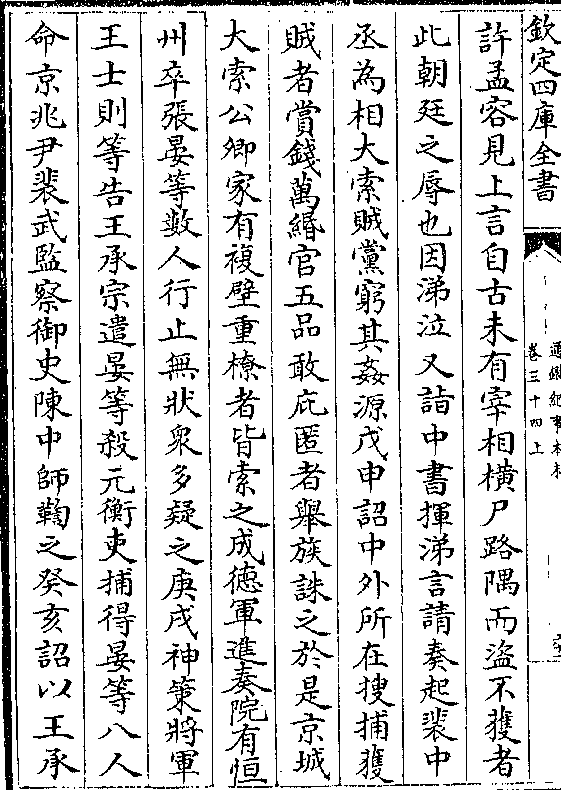 欽定四庫全書
通鑑紀事本末
卷三十四上
許孟容見上言自古未有宰相橫尸路隅而盜不獲者
此朝廷之辱也因涕泣又詣中書揮涕言請奏起裴中
丞為相大索賊黨窮其姦源戊申詔中外所在搜捕獲
賊者賞錢萬緡官五品敢庇匿者舉族誅之於是京城
大索公卿家有複壁重橑者皆索之成德軍進奏院有恒
州卒張晏等數人行止無狀衆多疑之庚戌神策將軍
王士則等告王承宗遣晏等殺元衡吏捕得晏等八人
命京兆尹裴武監察御史陳中師鞫之癸亥詔以王承